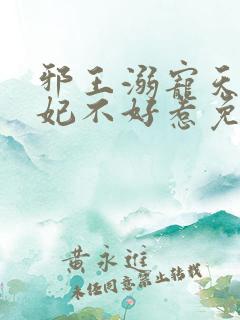 邪王溺寵天
妃不好惹免
黄永進
未经同意禁止转载